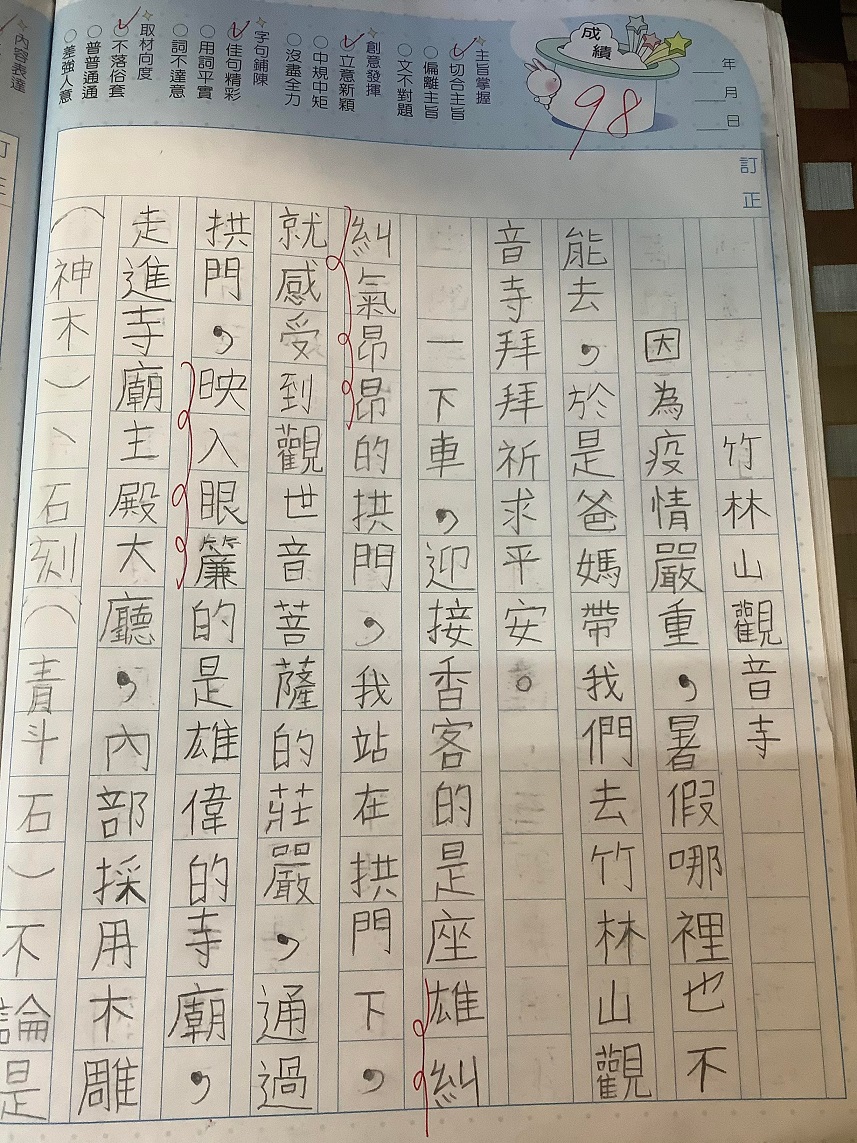 年
月
日
成績
98
主旨掌握
切合主旨
偏離主旨
文不對題
創意發揮
立意新穎
中規中矩
沒盡全力
字句鋪陳
佳句精彩
用詞平實
詞不達意
取材向度
不落俗套
普普通通
差強人意
內容表達
訂正
竹林山觀音寺
因為疫情嚴重，暑假哪裡也不
能去，於是爸媽帶我們去竹林山觀
音寺拜拜祈求平安。
一下車，迎接香客的是座雄糾
糾氣昂昂的拱門，我站在拱門下，
就感受到觀世音菩薩的莊嚴，通過
拱門，映入眼簾的是雄偉的寺廟，
走進寺廟主殿大廳，內部採用木雕
（神木）、石刻（青斗石）不論是